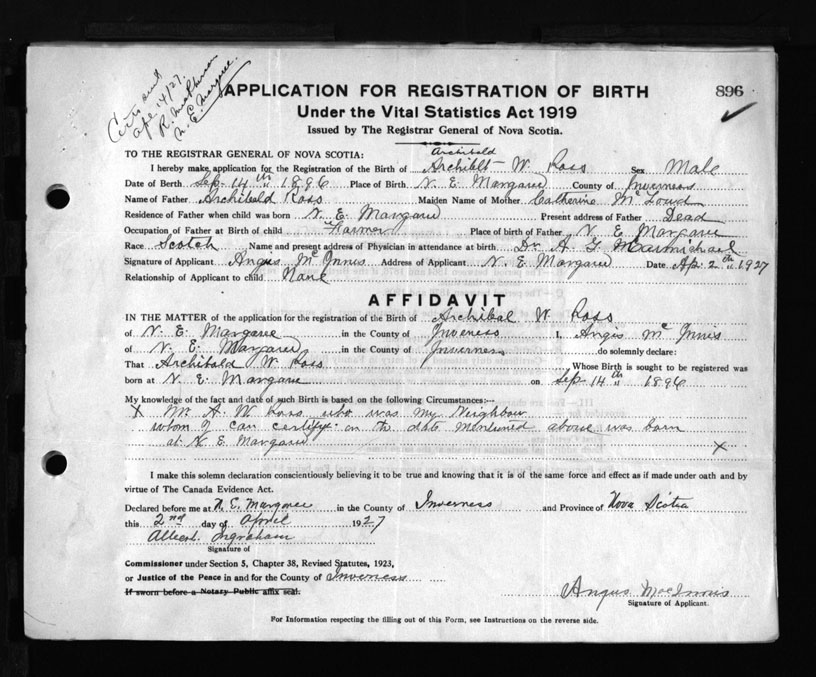 Certs sent
Apl 14/27.
N. E. Margaree.
APPLICATION FOR REGISTRATION OF BIRTH 896
Under the Vital Statistics Act 1919
Issued by The Registrar General of Nova Scotia.
TO THE REGISTRAR GENERAL OF NOVA SCOTIA: Archibald
I hereby make application for the Registration of the Birth of Archiblt W. Ross Sex Male
Date of Birth Sep. 14th 1896 Place of Birth N. E. Margaree County of Inverness
Name of Father Archibald Ross Maiden Name of Mother Catherine McLoud
Residence of Father when child was born N. E. Margaree Present address of Father Dead
Occupation of Father at Birth of child Farmer Place of birth of Father N. E. Margaree
Race Scotch Name and present address of Physician in attendance at birth Dr. A
Signature of Applicant Angus McInnis Address of Applicant N. E. Margaree Date Ap. 2th 1927
Relationship of Applicant to child None
AFFIDAVIT
IN THE MATTER of the application for the registration of the Birth of Archibal W. Ross
of N. E. Margaree in the County of Inveness I, Angis McInnis
of N. E. Margaree in the County of Inverness do solemnly declare:
That Archibald W. Ross Whose Birth is sought to be registered was
born at N. E. Margaree on Sep 14th 1896
My knowledge of the fact and date of such Birth is based on the following Circumstances:—
X Mr A. W. Ross who was my Neighbour
whom I can certify on the date mentioned above was born
at N. E. Margaree X
I make this solemn declaration conscientiously believing it to be true and knowing that it is of the same force and effect as if made under oath and by
virtue of The Canada Evidence Act.
Declared before me at N. E. Margaree in the County of Inverness and Province of Nova Scotia
this 2nd day of April 1927
Albert Ingraham
Signature of
Commissioner under Section 5, Chapter 38, Revised Statutes, 1923,
or Justice of the Peace in and for the County of Inverness
If sworn before a Notary Public affix seal. Angus MacInnis
Signature of Applicant.
For Information respecting the filling out of this Form, see Instructions on the reverse side.